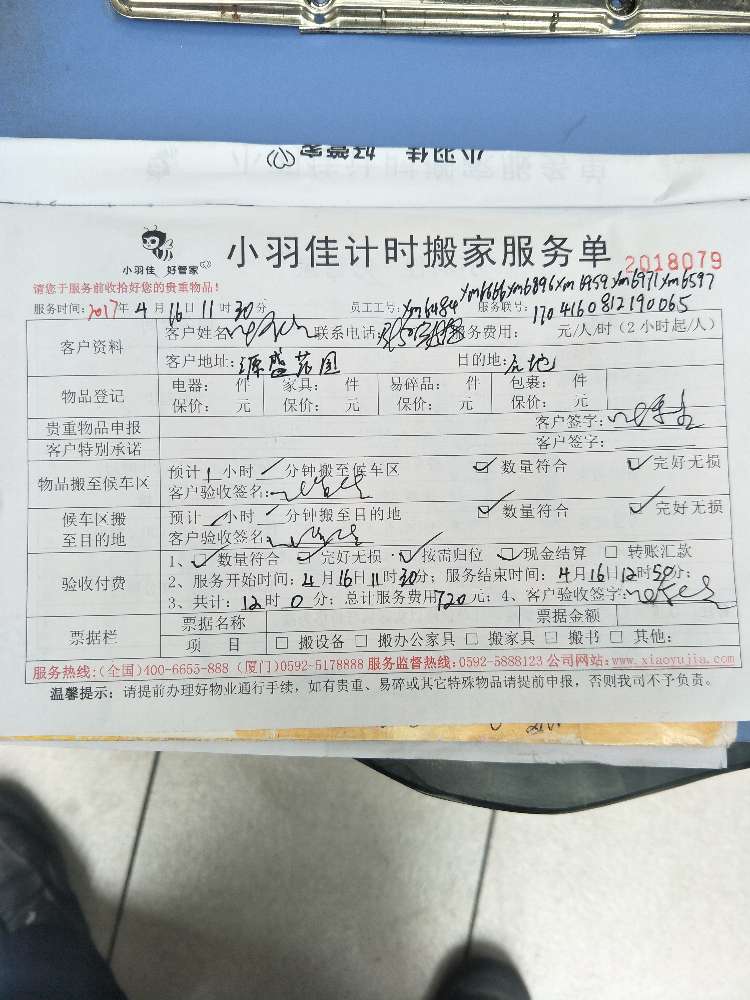 小羽佳 好管家
小羽佳 好管家
小羽佳计时搬家服务单
2018079
请您于服务前收拾好您的贵重物品!
xm6666xm6896xm6959xm6971xm6597
服务时间:2017年4月16日11时30分 员工工号:xm6484 服务联号:170416081219 0065
客户资料 客户姓名: 联系电话: 服务费用: 元/人/时(2小时起/人)
客户地址:源盛花园 目的地:
物品登记 电器: 件 家具: 件 易碎品: 件 包裹: 件
保价: 元 保价: 元 保价: 元 保价: 元
贵重物品申报 客户签字:
客户特别承诺 客户签字:
物品搬至候车区 预计1小时 分钟搬至候车区 ☑数量符合 ☑完好无损
客户验收签名:
候车区搬至目的地 预计 小时 分钟搬至目的地 ☑数量符合 ☑完好无损
客户验收签名:
验收付费 1、☑数量符合 ☑完好无损 ☑按需归位 ☑现金结算 □转账汇款
2、服务开始时间:4月16日11时30分;服务结束时间:4月16日12时50分;
3、共计:12时0分;总计服务费用720元;4、客户验收签字:
票据栏 票据名称 票据金额
项 目 □搬设备 □搬办公家具 □搬家具 □搬书 □其他:
服务热线:(全国)400-6655-888 (厦门)0592-5178888 服务监督热线:0592-5888123 公司网站:www.xiaoyujia.com
温馨提示:请提前办理好物业通行手续,如有贵重、易碎或其它特殊物品请提前申报,否则我司不予负责。